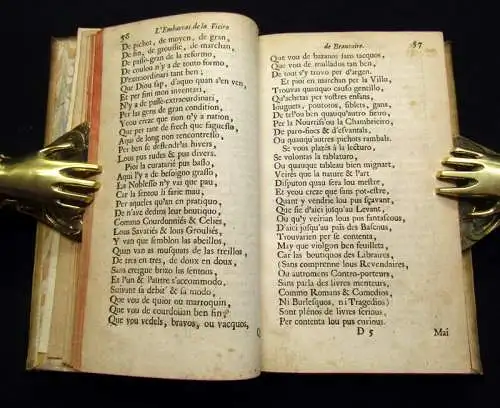 56 L'Embarras de la Fieiro
De pichot, de moyen, de gran,
De fin, de grousse, de marchan,
De passo-gran de la reformo,
De coulou n'y a de touto formo,
D'extraourdinari tant ben;
Que Diou sap, d'aquo quan s'en ven,
Et per fini mon inventari,
N'y a de passo-extraourdinari;
Per las gens de gran condition,
Yeou creze que non n'y a nation,
Que per tant de frech que faguesso,
Aqui de long non rescontresso,
Per ben se deffendre'hs hivers,
Lous pus rudes & pus divers.
Piei la curatarié pus basso,
Aqui l'y a de besoigno grasso,
La Noblesso n'y vas que pau,
Car la sentou li farié mau,
Per aqueles qu'an en pratiquo,
De n'ave dedins lour boutiquo,
Commo Courdounniés & Celiés,
Lous Savatiés & lous Grouliés,
Y van que semblan las abeillos,
Quan van as musquats de las treillos,
De tres en tres, de doux en doux,
Sans cregne brizo las sentous,
Et l'un & l'autre s'accommodo,
Suivant sa debit' & sa modo,
Que vou de quior ou marroquin,
Que vou de courdouan ben fin,
Que vou vedels, bravos, ou vacquos,
Q
de Beaucaire. 57
Que vou de bazanos sans tacquos,
Que vou de traillados tan ben;
De tout s'y trovo per d'argen.
Et piei en marchan per la Villo,
Trouvas quauquo causo gentillo,
Qu'achetas per vostres enfans,
Jouguets, poutotos, fiblets, gans,
De tel'ou ben quauqu'autro fieiro,
Per la Nourrisso'ou la Chambrieiro,
De paro-fiocs & d'esvantals,
Ou quauqu'autres pichots rambals.
Se vous plazés à la lecturo,
Se voulontas la tablaturo,
Ou quauque tableu bien mignart,
Veirés que la nature & l'art
Disputon quau sera lou mestre,
Et yeou creze que sans pot-estre,
Quant y vendrie lou pus sçavent,
Que sie d'aici jusqu'au Levant,
Ou qu'y veirias lous pus fantascous,
D'aici jusqu'au païs das Bascous,
Trouvarien per se contenta,
May que vòlgon ben feuilleta,
Car las boutiquos des Libraires,
(Sans comprenne lous Revendaires,
Ou autromens Contro-porteurs,
Sans parla des livres menteurs,
Commo Romans & Comedios,
Ni Burlesquos, ni Tragedios)
Sont plénos de livres serious,
Per contenta lou pus curious.
D 5 Mai